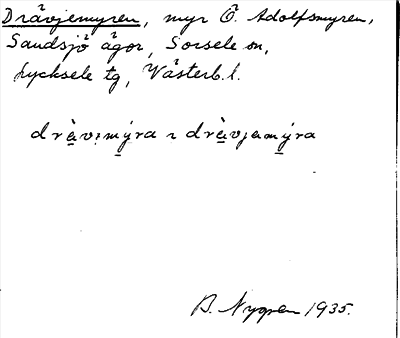 Drävjemyren, myr Ö. Adolfsmyren,
Sandsjö ägor, Sorsele sn,
Lycksele tg, Västerb. l.
drävi̇mýra ı drävjamýra
B. Nygren 1935.